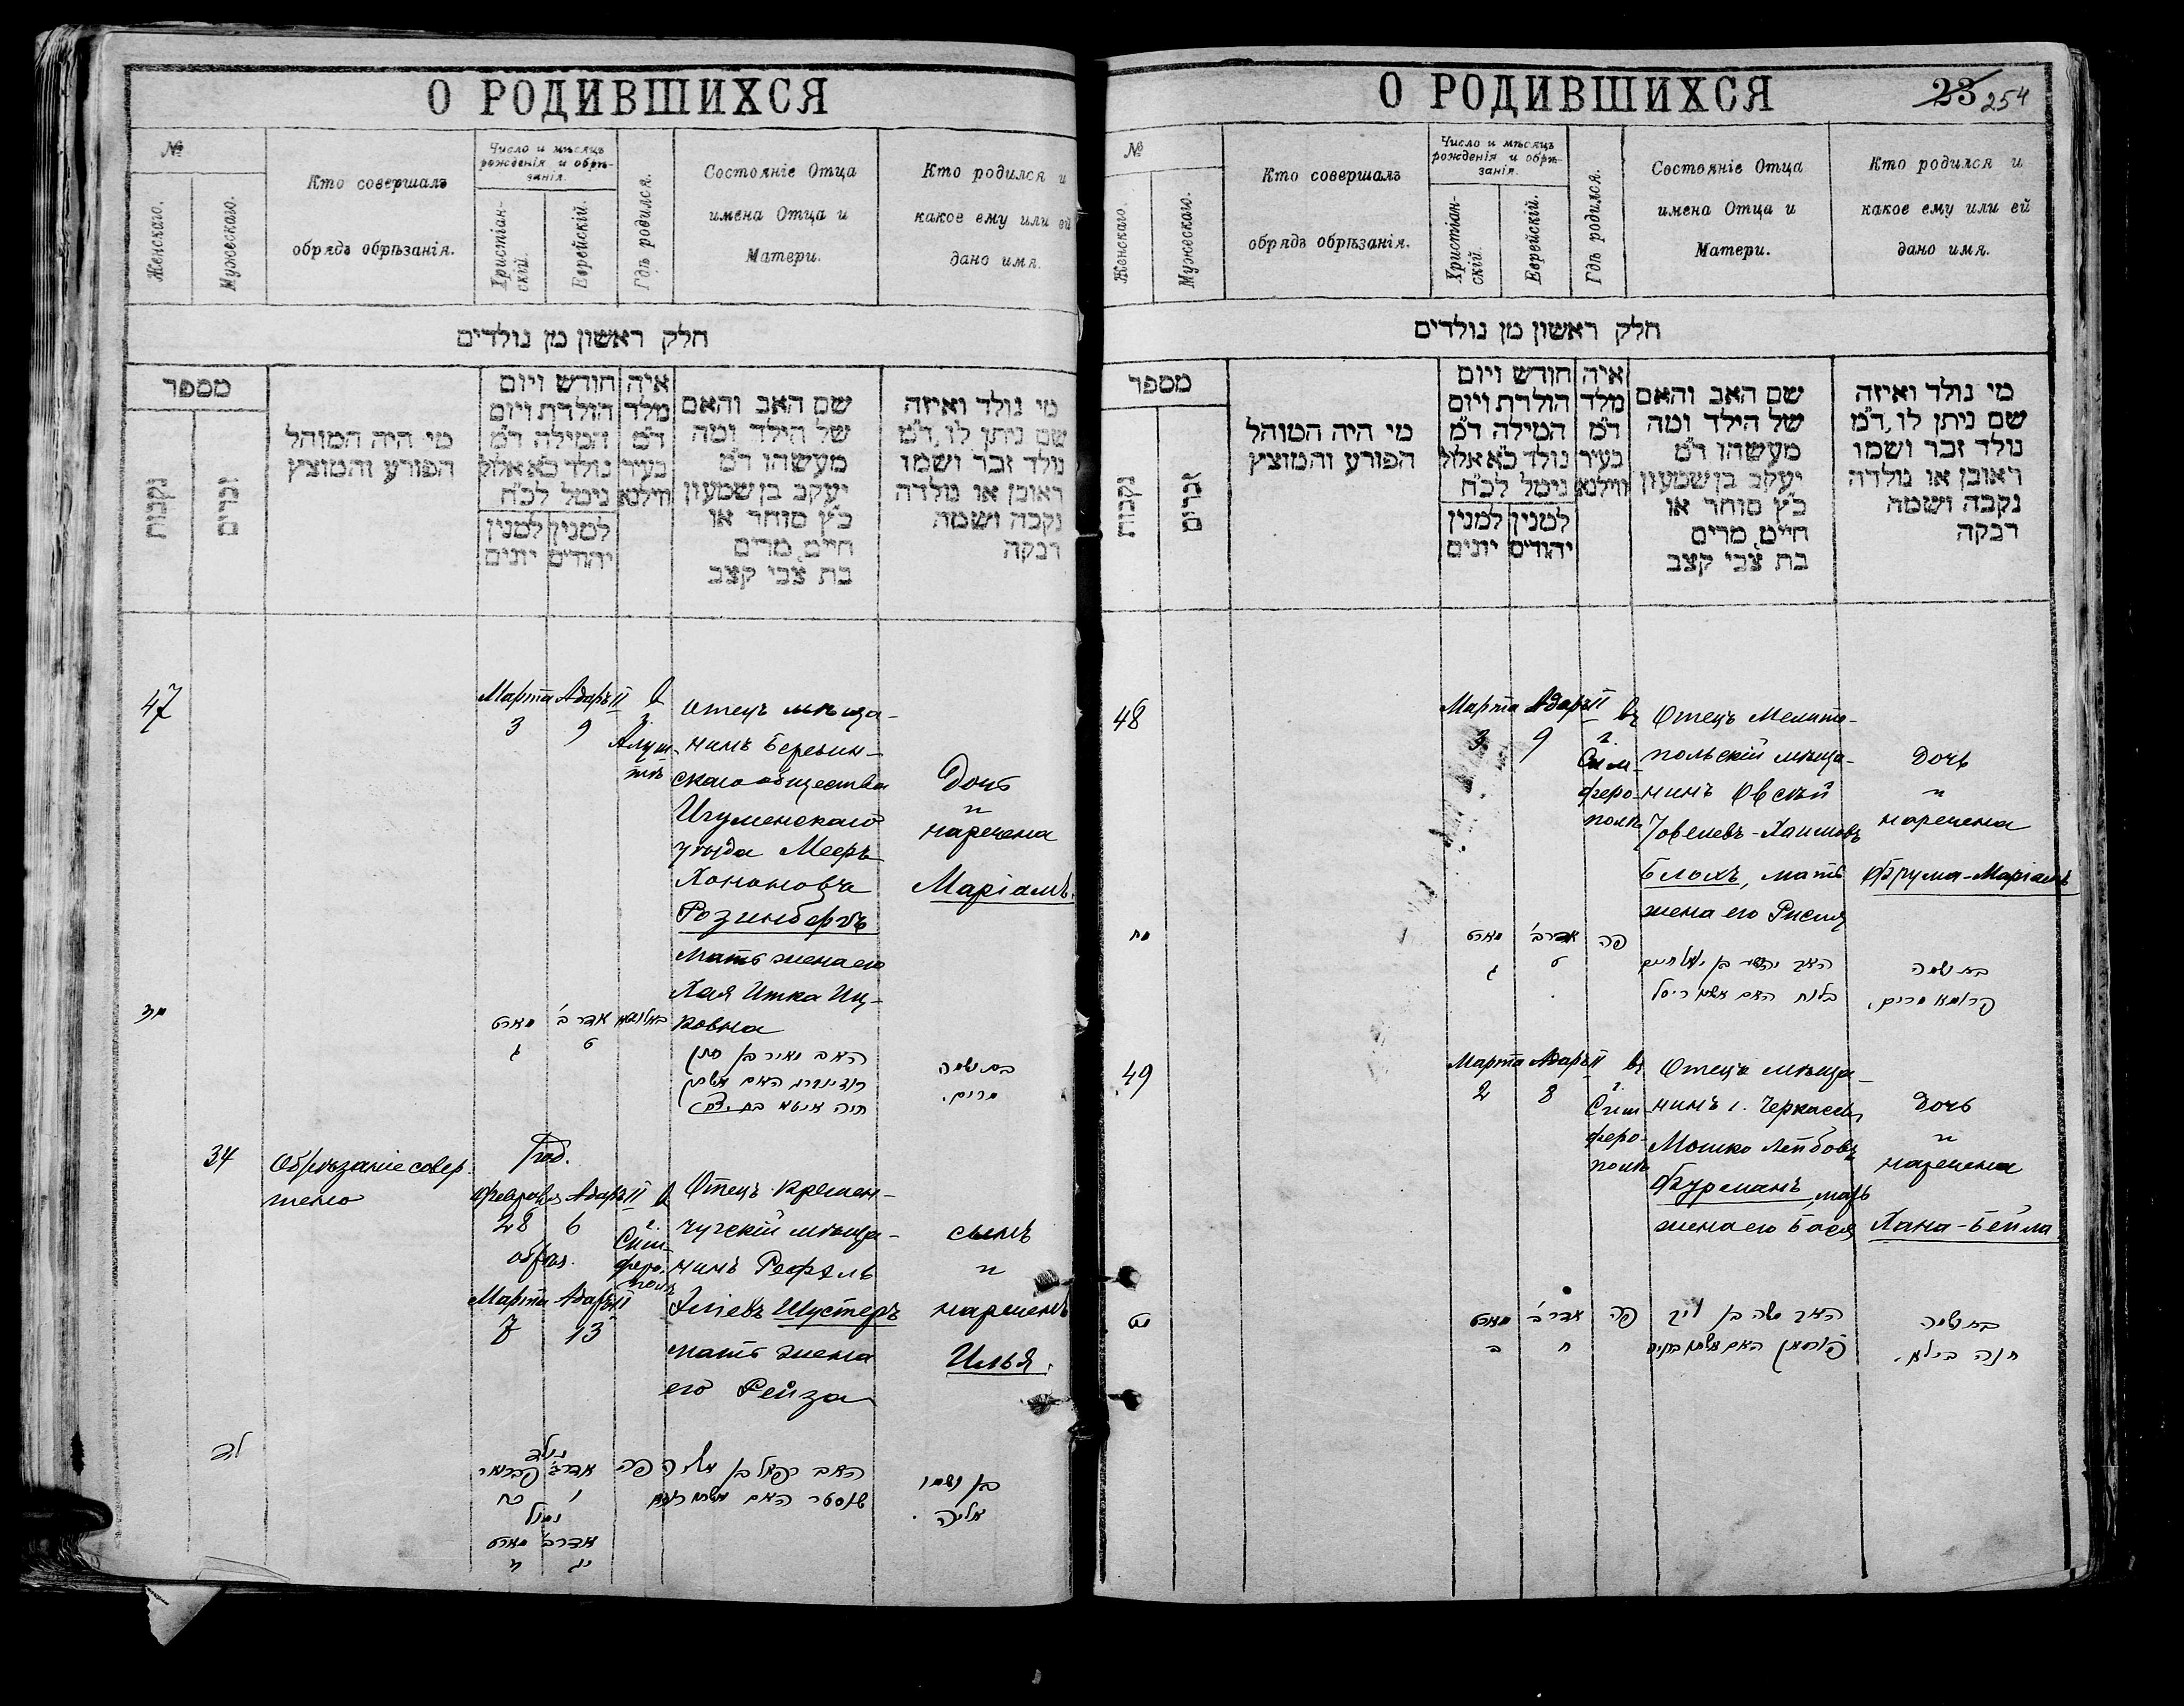 О РОДИВШИХСЯ
№
Женскаго.
Мужескаго.
Кто совершалъ
обрядъ обрѣзанія.
Число и мѣсяцъ
рожденія и обрѣ-
занія.
Христіан-
скій.
Еврейскій.
Гдѣ родился.
Состояніе Отца
имена Отца и
Матери.
Кто родился и
какое ему или ей
дано имя.
חלק ראשון מן נולדים
מספר
נקבות
זכרים
מי היה המוהל
הפורע והמוצץ
חודש ויום
הולדת ויום
המילה ד״מ
נולד כ״א אלול
נימל לכ״ח
למנין למנין
יהודים יונים
איה
מלד
ד״מ
בעיר
ווילנא
שם האב והאם
של הילד ומה
מעשהו ד״מ
יעקב בן שמעון
כ״ץ סוחר או
חיים, מרים
בת צבי קצב
מי נולד ואיזה
שם ניתן לו, ד״מ
נולד זכר ושמו
ראובן או נולדה
נקבה ושמה
רבקה
47
Марта Адаръ II
3 9
В
г.
Алуш-
тѣ
Отецъ мѣща-
нинъ Березин-
скаго общества
Игуменскаго
уѣзда Мееръ
Хононовъ
Розинбергъ
мать жена его
Хая Итка Иц-
ковна
Дочь
и
наречена
Маріамъ.
מז
מארט אדר ב׳
ג ט
האב מאיר בן חנן
האם אשתו
חיה איטא בת
בת ושמה
מרים.
34
Обрѣзаніе совер-
шено
Род.
Февраля Адаръ II
28 6
обрѣз.
Марта Адаръ II
7 13
В
г.
Сим-
феро-
полѣ
Отецъ Кремен-
чугскій мѣща-
нинъ Рефэль
Хилевъ Шустеръ
мать жена
его Рейза
сынъ
и
нареченъ
Илья.
לד
נולד
אדר ב׳ פברואר
ו כח
נימול
אדר ב׳ מארט
יג ז
פה
האב רפאל בן
שוסטר האם אשתו רייזא
בן ושמו
אליה.
О РОДИВШИХСЯ
23 254
№
Женскаго.
Мужескаго.
Кто совершалъ
обрядъ обрѣзанія.
Число и мѣсяцъ
рожденія и обрѣ-
занія.
Христіан-
скій.
Еврейскій.
Гдѣ родился.
Состояніе Отца
имена Отца и
Матери.
Кто родился и
какое ему или ей
дано имя.
חלק ראשון מן נולדים
מספר
נקבות
זכרים
מי היה המוהל
הפורע והמוצץ
חודש ויום
הולדת ויום
המילה ד״מ
נולד כ״א אלול
נימל לכ״ח
למנין למנין
יהודים יונים
איה
מלד
ד״מ
בעיר
ווילנא
שם האב והאם
של הילד ומה
מעשהו ד״מ
יעקב בן שמעון
כ״ץ סוחר או
חיים, מרים
בת צבי קצב
מי נולד ואיזה
שם ניתן לו, ד״מ
נולד זכר ושמו
ראובן או נולדה
נקבה ושמה
רבקה
48
Марта Адаръ II
3 9
въ
г.
Сим-
феро-
полѣ
Отецъ Мелито-
польскій мѣща-
нинъ Овсѣй
Хаимовъ
Блохъ, мать
жена его Рисля
Дочь
и
наречена
Фрума-Маріамъ
מח
מארט אדר ב׳ פה
ג ט
בלוח האם אשתו ריסל
בת ושמה
פרומא מרים.
49
Марта Адаръ II
2 8
въ
г.
Сим-
феро-
полѣ
Отецъ мѣща-
нинъ г. Черкассъ
Мошко Лейбовъ
Фурманъ, мать
жена его Бася
Дочь
и
наречена
Хана-Бейла
מט
מארט אדר ב׳ פה
ב ח
האב משה בן לייב
פורמאן האם אשתו
בת ושמה
חנה ביילא.